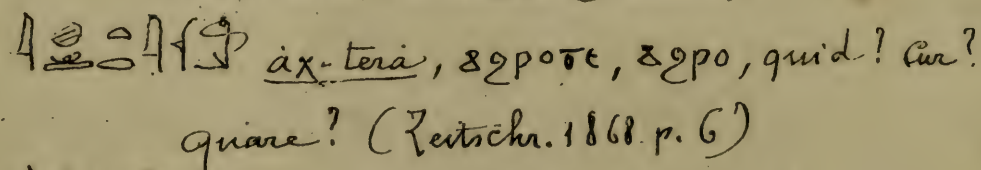 àχ-terà, ⲁϩⲣⲟⲧⲉ, ⲁϩⲣⲟ, quid? Cur?
quare? (Zeitschr. 1868. p. 6)